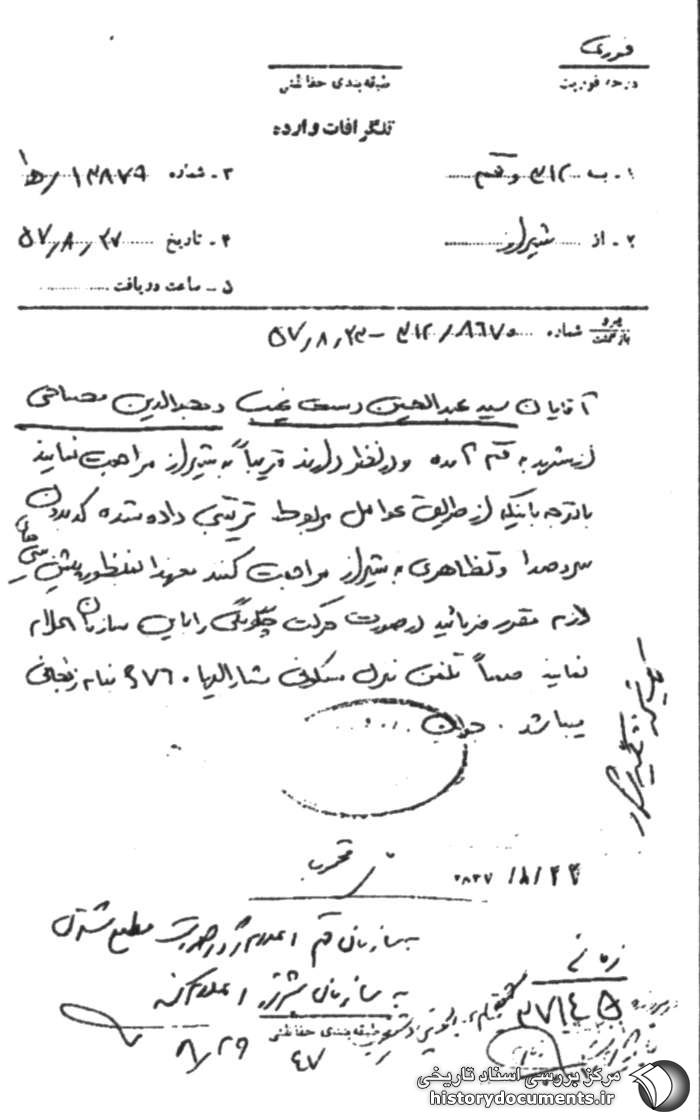 فوری
درجه فوریت
طبقه‌بندی حفاظتی
تلگرافات وارده
۱ - ب ۳۱۲ و قم
۳ - شماره ۱۳۸۷۹ / ه‍ ۱
۲ - از شیراز
۴ - تاریخ ۵۷٫۸٫۲۷
۵ - ساعت دریافت
پیرو
بازگشت
شماره ۳۱۲/۸۶۷۵ - ۵۷٫۸٫۲۳
آقایان سید عبدالحسین دست غیب و مجدالدین مصباحی
از مشهد به قم آمده و در نظر دارند قریباً به شیراز مراجعت نمایند
با توجه باینکه از طریق عوامل مربوط ترتیبی داده شده که بدون
سر و صدا و تظاهری به شیراز مراجعت کنند معهذا بمنظور پیش بینی های
لازم مقرر فرمائید در صورت حرکت چگونگی را باین سازمان اعلام
نمایند ضمناً تلفن منزل مسکونی مشارالیها ۶۷۶۰ بنام زنجانی
میباشد .
۲۸۳۷ /۸/۲۴
به سازمان قم اعلام در صورت مطلع شدن
به سازمان شیراز اعلام کنند
زمانی
۳۷۱۴۵
طبقه‌بندی حفاظتی
۸/۲۹
۴۷
مرکز بررسی اسناد تاریخی
historydocuments.ir